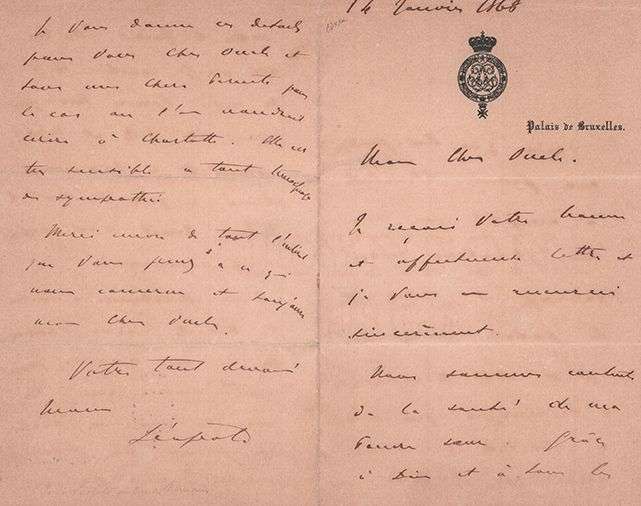 14 Janvier 1868
Palais de Bruxelles.
Mon Cher Oncle.
Je recois Votre bonne
et affectueuse lettre et
je Vous en remercie
sincèrement.
Nous sommes contents
de la santé de ma
soeur. Grâce
à Dieu et à tous les
Je Vous donne ces details
pour Vous Cher Oncle et
tous nos chers Parents pour
le cas ou l'on voudrait
ecrire à Charlotte. Elle est
tres sensible a tout temoignage
de sympathie.
Merci encore de tout l'intéret
que Vous prenez à ce qui
nous concerne et
mon Cher Oncle.
Votre tout devoué
neveu
Léopold